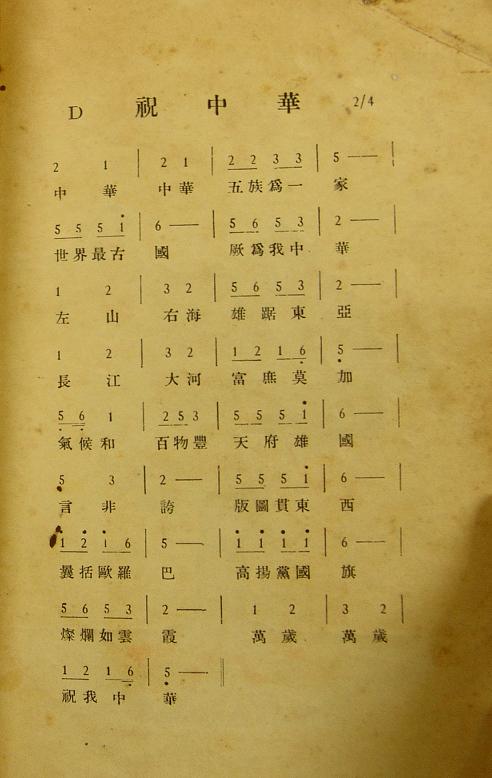 D 祝中華 2/4
2 1 | 2 1 | 2 2 3 3 | 5 — |
中華 中華 五族爲一 家
5 5 5 1 | 6 — | 5 6 5 3 | 2 — |
世界最古 國 厥爲我中 華
1 2 | 3 2 | 5 6 5 3 | 2 — |
左山 右海 雄踞東 亞
1 2 | 3 2 | 1 2 1 6 | 5 — |
長江 大河 富庶莫 加
5 6 1 | 2 5 3 | 5 5 5 1 | 6 — |
氣候和 百物豐 天府雄 國
5 3 | 2 — | 5 5 5 1 | 6 — |
言非 誇 版圖貫東 西
1 2 1 6 | 5 — | 1 1 1 1 | 6 — |
囊括歐羅 巴 高揚黨國 旗
5 6 5 3 | 2 — | 1 2 | 3 2 |
燦爛如雲 霞 萬歲 萬歲
1 2 1 6 | 5 — ‖
祝我中 華